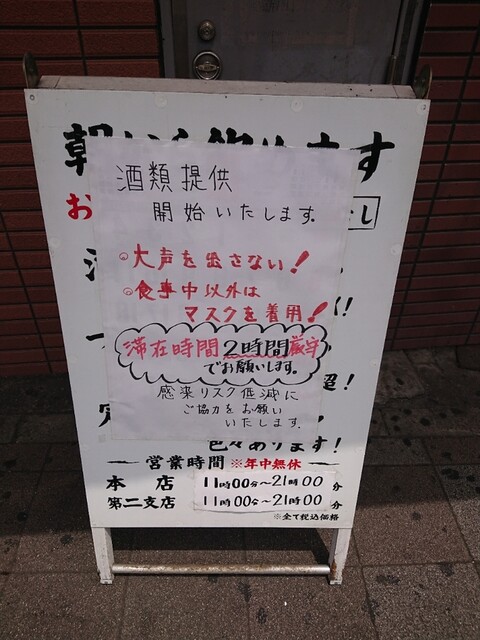 朝から飲めます
お
し
酒類提供
開始いたします。
大声を出さない!
食事中以外は
マスクを着用!
滞在時間2時間厳守
でお願いします。
感染リスク低減に
ご協力をお願い
いたします。
色々あります!
営業時間 ※年中無休
本店 11時00分〜21時00分
第二支店 11時00分〜21時00分
※全て税込価格